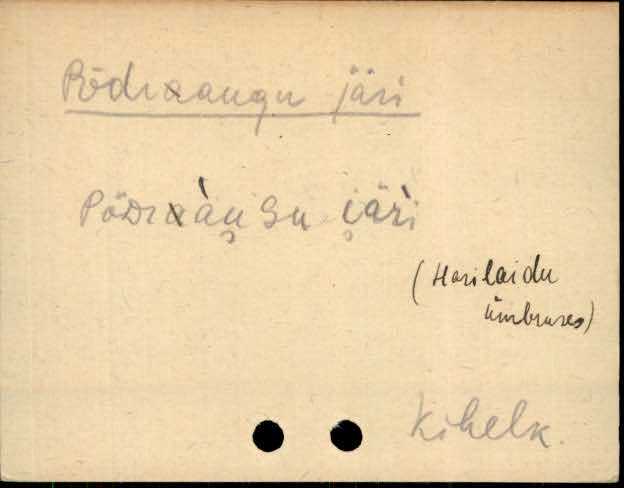 Põdraaugu järi
Põdraàu̯Gu i̯äri
(Harilaidu
ümbruses)
Kihelk.